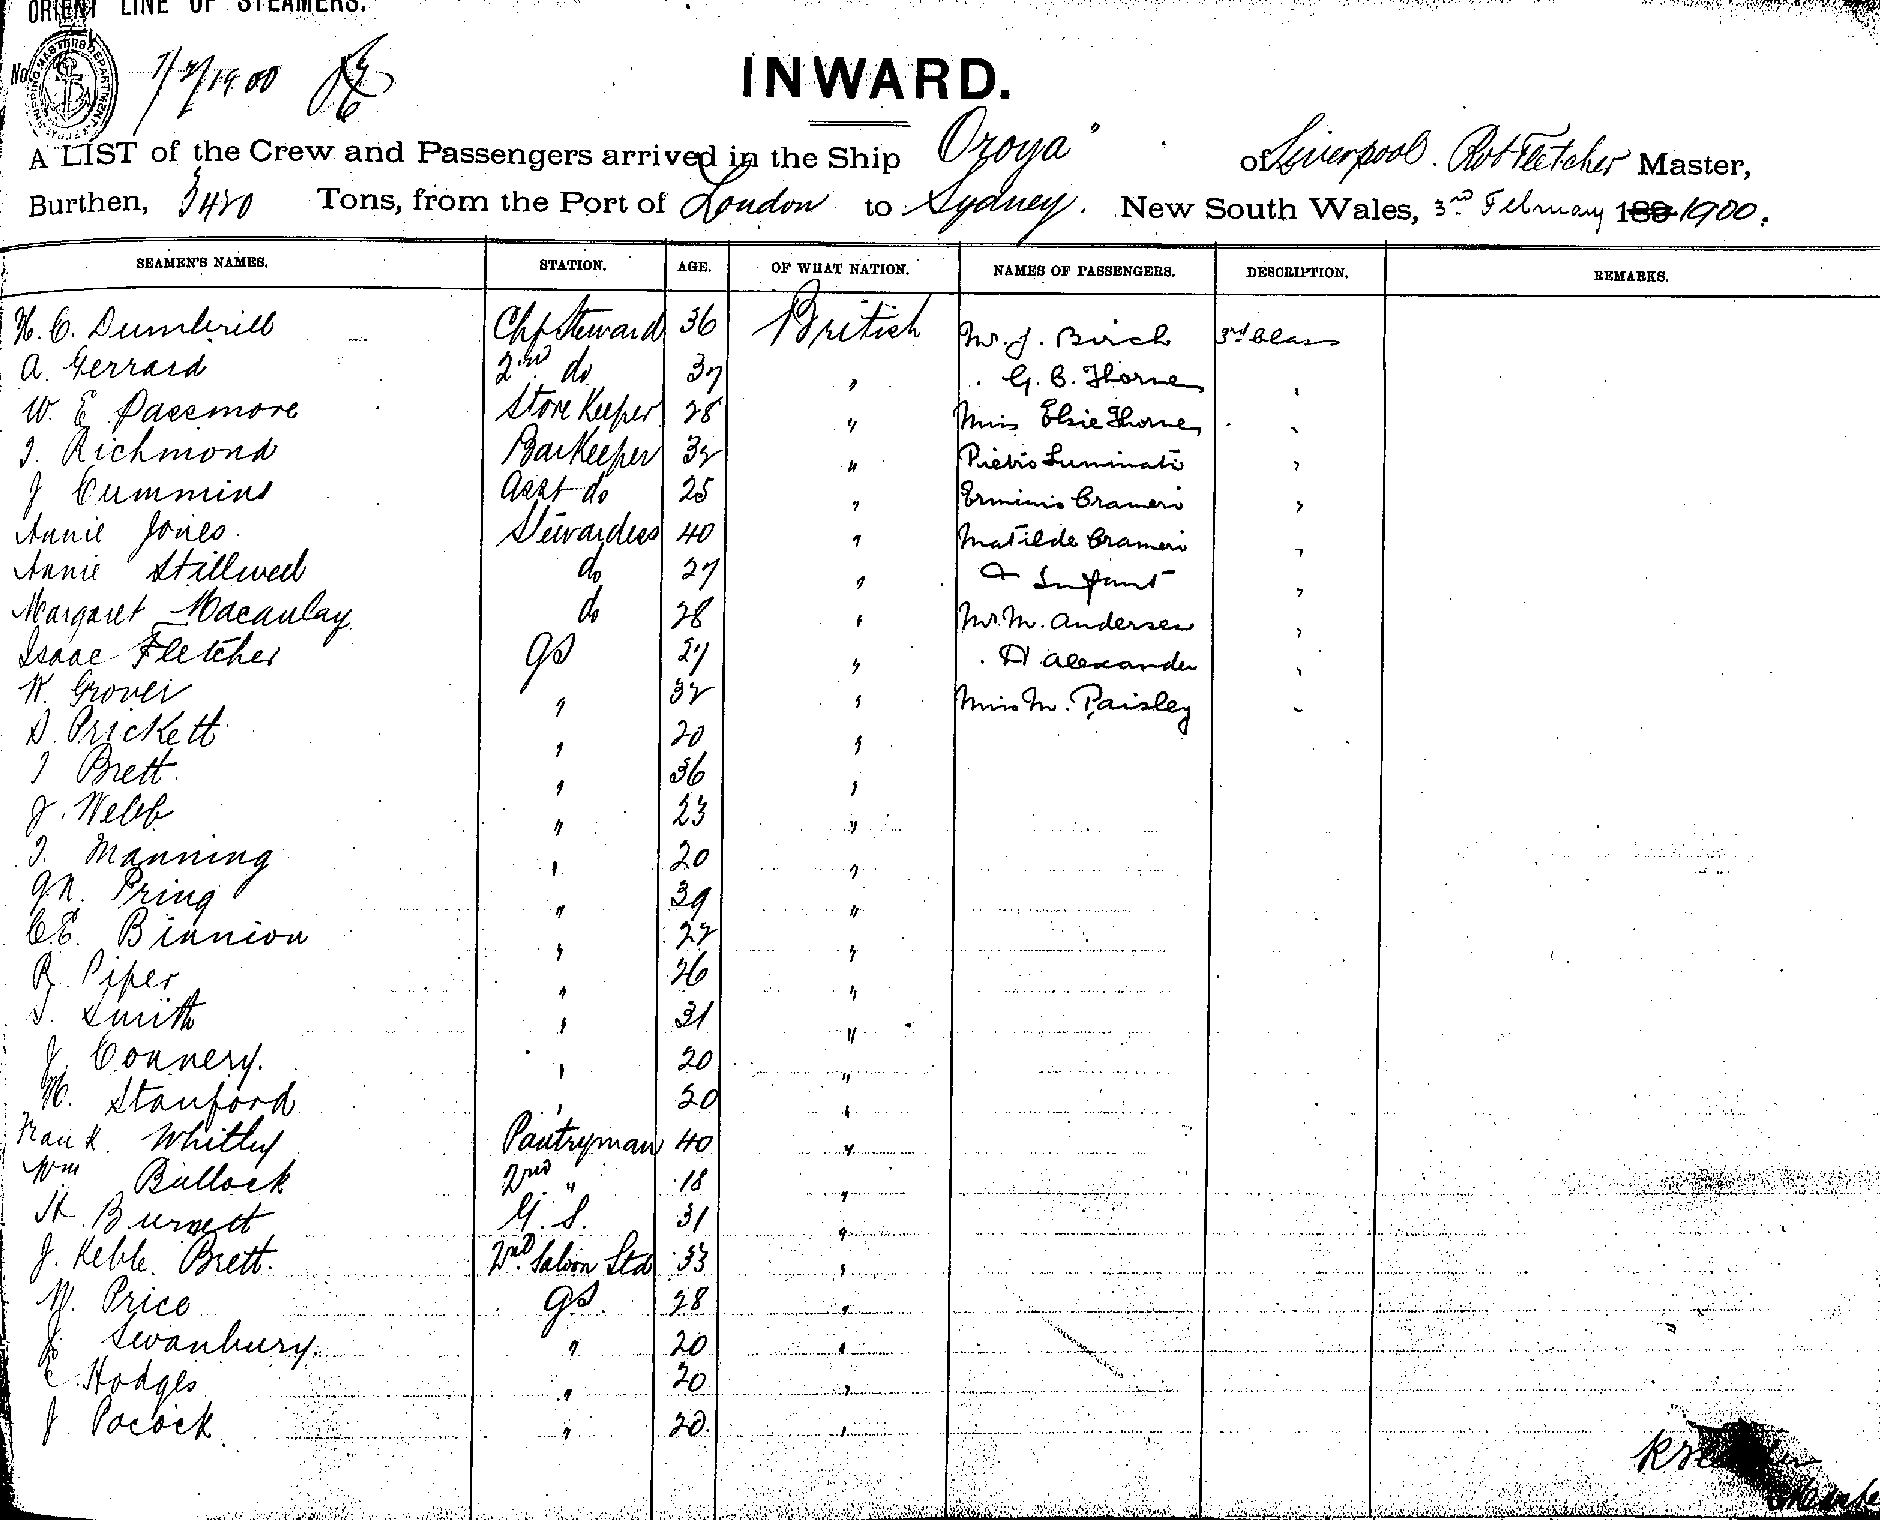 ORIENT LINE OF STEAMERS.
No 7/2/1900
INWARD.
A LIST of the Crew and Passengers arrived in the Ship Oroya" of Liverpool. Rob Fletcher Master,
Burthen, 3420 Tons, from the Port of London to Sydney. New South Wales, 3rd February 189 1900.
SEAMEN'S NAMES. STATION. AGE. OF WHAT NATION. NAMES OF PASSENGERS. DESCRIPTION. REMARKS.
H. C. Dumbrill Chf Steward 36 British Mr. J. Birch 3rd Class
A. Gerrard 2nd do 37 " . G. C. Thorne "
W. E Passmore Store Keeper 28 " Miss Elsie Thorne "
T. Richmond BarKeeper 32 " Pietro Luminati "
J Cummins Asst do 25 " Erminio Crameri "
Annie Jones. Stewardess 40 " Matilde Crameri "
Annie Stillwell do 27 " & Infant "
Margaret Macaulay do 28 " Mr. M. Andersen "
Isaac Fletcher GS 27 " . A Alexander "
W. Grover " 32 " Miss M. Paisley "
D. Prickett " 20 "
T Brett. " 36 "
J. Webb " 23 "
T. Manning " 20 "
G.N. Pring " 39 "
C.E. Binnion " 22 "
R. Piper " 26 "
T. Smith " 31 "
J. Connery. " 20 "
W. Stanford " 20 "
Frank Whitley Pantryman 40 "
Wm Bullock 2nd " 18 "
H. Burnett G. S. 31 "
J. Keble. Brett. 2nd Saloon Std 33 "
W. Price GS. 28 "
J. Swanbury. " 20 "
E Hodges " 20 "
J Pocock " 20. "